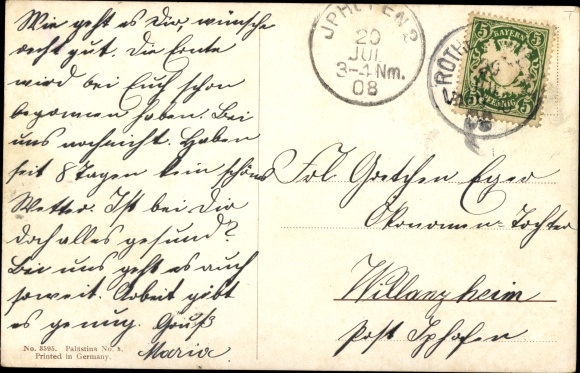 Wie geht es Dir, wünsche
recht gut. Die Ernte
wird bei Euch schon
begonnen haben. Bei
uns noch nicht. Haben
seit 8 Tagen kein schönes
Wetter. Ist bei Dir
doch alles gesund?
Bei uns geht es auch
soweit. Arbeit gibt
es genug. Gruß
Maria
No. 3595. Palästina No. 5.
Printed in Germany.
IPHOFEN 2
20
JUL
3-4 Nm.
08
ROTH
5 BAYERN 5
5 PFENNIG 5
Frl. Gretchen Eger
Ökonomen-Tochter
Willanzheim
Post Iphofen